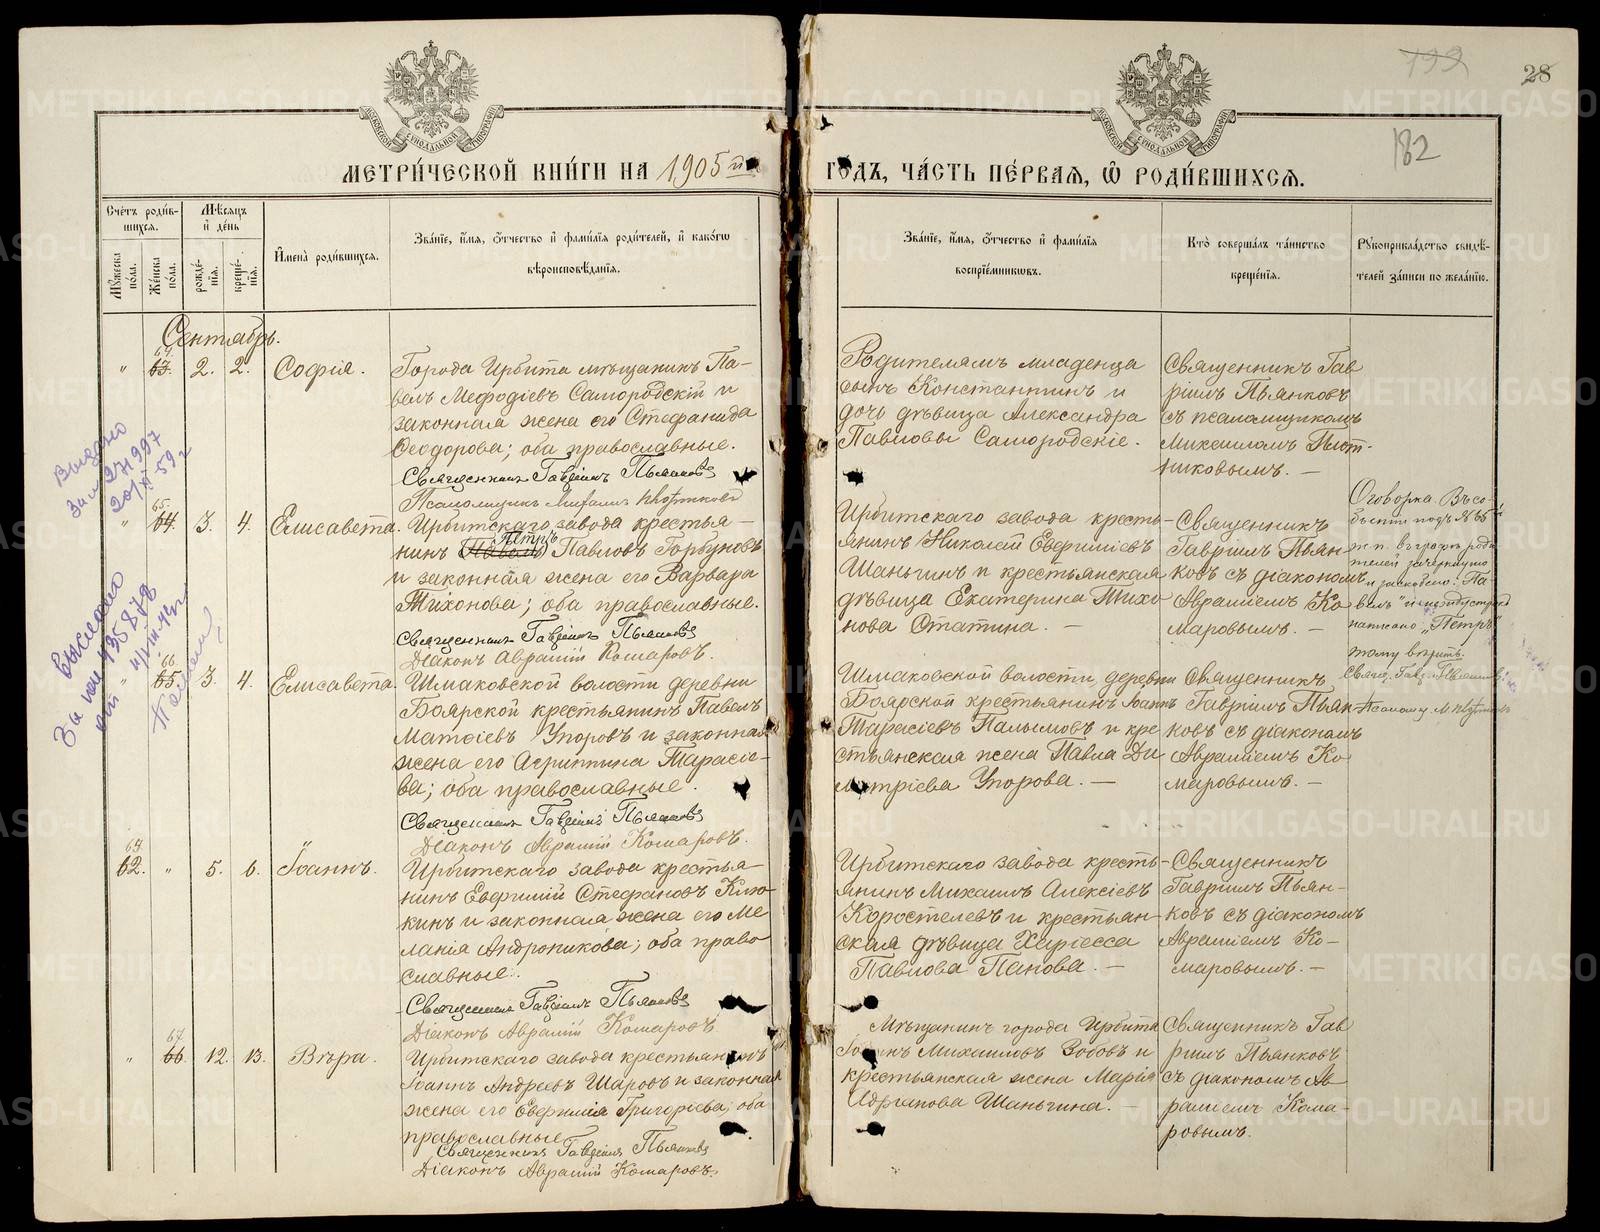 METRIKI.GASO-URAL.RU
28
182
МОСКОВСКОЙ СѴНОДАЛЬНОЙ ТИПОГРАФІИ
МОСКОВСКОЙ СѴНОДАЛЬНОЙ ТИПОГРАФІИ
МЕТРИ́ЧЕСКОЙ КНИ́ГИ НА 1905й
ГО́ДЪ, ЧА́СТЬ ПЕ́РВАЯ, Ѽ РОДИ́ВШИХСЯ.
Сче́тъ роди́в-
шихся.
Мѣ́сяцъ
и҆ де́нь
Мꙋ́жеска
по́ла.
Же́нска
по́ла.
рожде́-
нїя.
креще́-
нїя.
И҆мена̀ роди́вшихся.
Зва́нїе, и҆́мя, ѻ҆́тчество и҆ фами́лїя роди́телей, и҆ како́гѡ
вѣроисповѣ́данїя.
Зва́нїе, и҆́мя, ѻ҆́тчество и҆ фами́лїя
воспрїе́мникѡвъ.
Кто̀ соверша́лъ та́инство
креще́нїя.
Рꙋкоприкла́дство свидѣ́-
телей за́писи по жела́нїю.
Сентябрь.
64.
" 63. 2. 2. Софія.
Города Ирбита мѣщанинъ Па-
велъ Мефодіевъ Самородскій и
законная жена его Стефанида
Ѳеодорова; оба православные.
Священникъ Гавріилъ Пьянковъ
Псаломщикъ Михаилъ Плотниковъ
Родителямъ младенца
сынъ Константинъ и
дочь дѣвица Александра
Павловы Самородскіе.
Священникъ Гав
ріилъ Пьянковъ
съ псаломщикомъ
Михаиломъ Плот-
никовымъ. —
65.
" 64. 3. 4. Елисавета.
Ирбитскаго завода крестья-
Петръ
нинъ Павелъ Павловъ Горбуновъ
и законная жена его Варвара
Тихонова; оба православные.
Священникъ Гавріилъ Пьянковъ
Діаконъ Авраамій Комаровъ.
Ирбитскаго завода кресть-
янинъ Николай Евфиміевъ
Шаньгинъ и крестьянская
дѣвица Екатерина Тихо
нова Статина. —
Священникъ
Гавріилъ Пьян-
ковъ съ діакономъ
Авраміемъ Ко
маровымъ. —
Оговорка. Въ со-
бытіи подъ № 65й
ж. п. въ графѣ роди-
телей зачеркнуто
и заскоблено: "Па
велъ" и
написано "Петръ"
тому вѣрить.
Свящ. Гавр. Пьянковъ
Псаломщ. М. Плотниковъ
66.
" 65. 3. 4. Елисавета.
Шмаковской волости деревни
Боярской крестьянинъ Павелъ
Матѳіевъ Упоровъ и законная
жена его Агриппина Тарасіе-
ва; оба православные.
Священникъ Гавріилъ Пьянковъ
Діаконъ Авраамій Комаровъ.
Шмаковской волости деревни
Боярской крестьянинъ Іоаннъ
Тарасіевъ Палымовъ и кре
стьянская жена Павла Ди
митріева Упорова. —
Священникъ
Гавріилъ Пьян-
ковъ съ діакономъ
Авраміемъ Ко
маровымъ. —
62. " 5. 6. Іоаннъ.
Ирбитскаго завода крестья-
нинъ Евфимій Стефановъ Клю-
кинъ и законная жена его Ме
ланія Андроникова; оба право
славные.
Священникъ Гавріилъ Пьянковъ
Діаконъ Авраамій Комаровъ.
Ирбитскаго завода кресть-
янинъ Михаилъ Алексіевъ
Коростелевъ и крестьян-
ская дѣвица Харіесса
Павлова Панова. —
Священникъ
Гавріилъ Пьян-
ковъ съ діакономъ
Авраміемъ Ко-
маровымъ. —
67.
" 66. 12. 13. Вѣра.
Ирбитскаго завода крестьянинъ
Іоаннъ Андреевъ Шаровъ и законная
жена его Евфимія Григоріева; оба
православные
Священникъ Гавріилъ Пьянковъ
Діаконъ Авраамій Комаровъ.
Мѣщанинъ города Ирбита
Іоаннъ Михаиловъ Зобовъ и
крестьянская жена Марія
Адріанова Шаньгина. —
Священникъ Гав
ріилъ Пьянковъ
съ діакономъ Ав
раміемъ Кома-
ровымъ.
Выдано
выслано